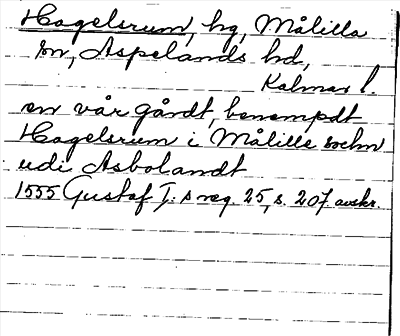 Hagelsrum, hg, Målilla
sn, Aspelands hd,
Kalmar l.
en vår gårdt, benempdt
Hagelsrum i Målille sochn
udi Asbolandt
1555 Gustaf I:s reg. 25, s. 207 avskr.